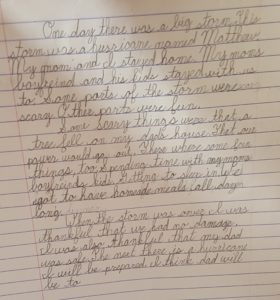 One day there was a big storm. This
storm was a hurricane named Matthew.
My mom and I stayed home. My moms
boyfreind and his kids stayed with us
to. Some parts of the storm were
scary. Other parts were fun.
Some scary things were that a
tree fell on my dads house. That our
power would go out. These where some fun
things, too. Spending time with my moms
boyfreinds kids. Getting to sleep in. We
got to have homeade meals all day
long.
When the storm was over I was
thankful that we had no damage.
I was also thankful that my dad
was safe. The next there is a hurricane
I will be prepared. I think dad will
be to.